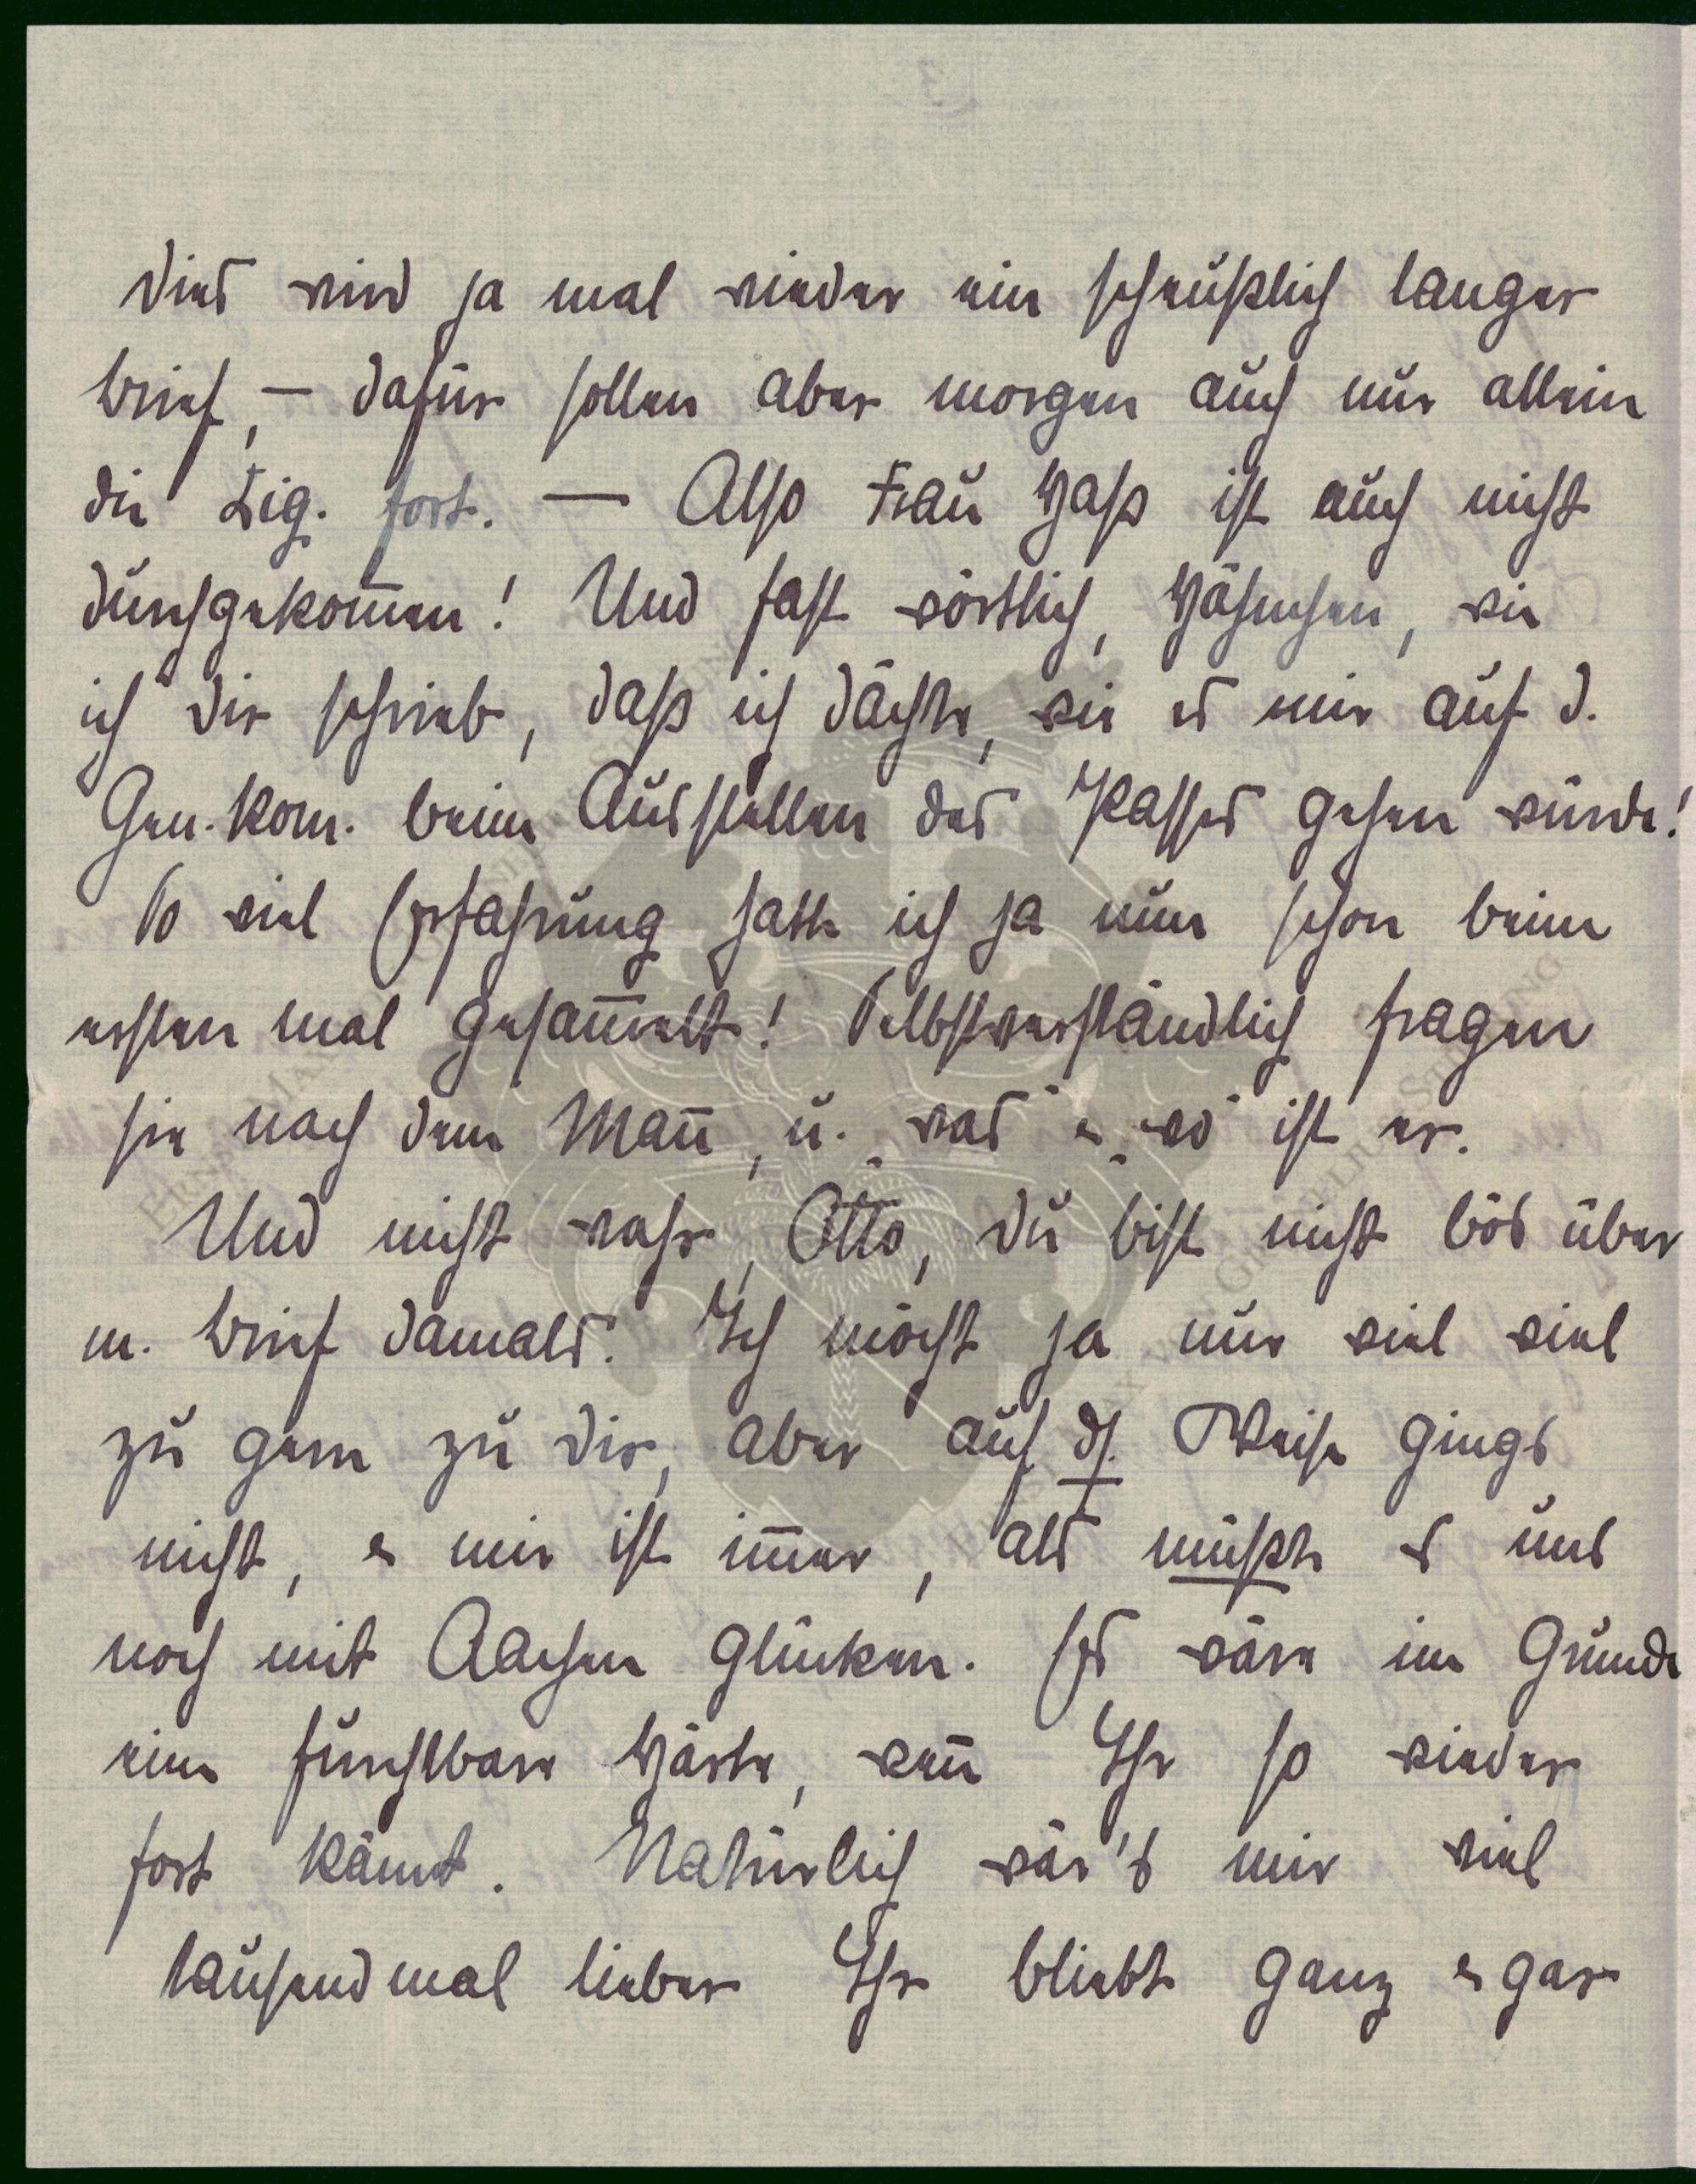 Dies wird ja mal wieder ein scheußlich langer
Brief, – dafür sollen aber morgen auch nur allein
die Zig. fort. — Also Frau Haß ist auch nicht
durchgekom̅en! Und fast wörtlich, Häschen, wie
ich Dir schrieb, daß ich dächte, wie es mir auf d.
Gen. Kom. beim Ausstellen des Passes gehen würde!
So viel Erfahrung hatte ich ja nun schon beim
ersten mal gesam̅elt! Selbstverständlich fragen
sie nach dem Man̅, u. „was“ & „wo“ ist er.
Und nicht wahr, Otto, Du bist nicht bös über
m. Brief damals. Ich möcht ja nur viel viel
zu gern zu Dir, aber auf ds. Weise gings
nicht, & mir ist im̅er, als müßte es uns
noch mit Aachen glücken. Es wäre im Grunde
eine furchtbare Härte, wen̅ Ihr so wieder
fort kämt. Natürlich wär's mir viel
tausendmal lieber Ihr bliebt ganz & gar